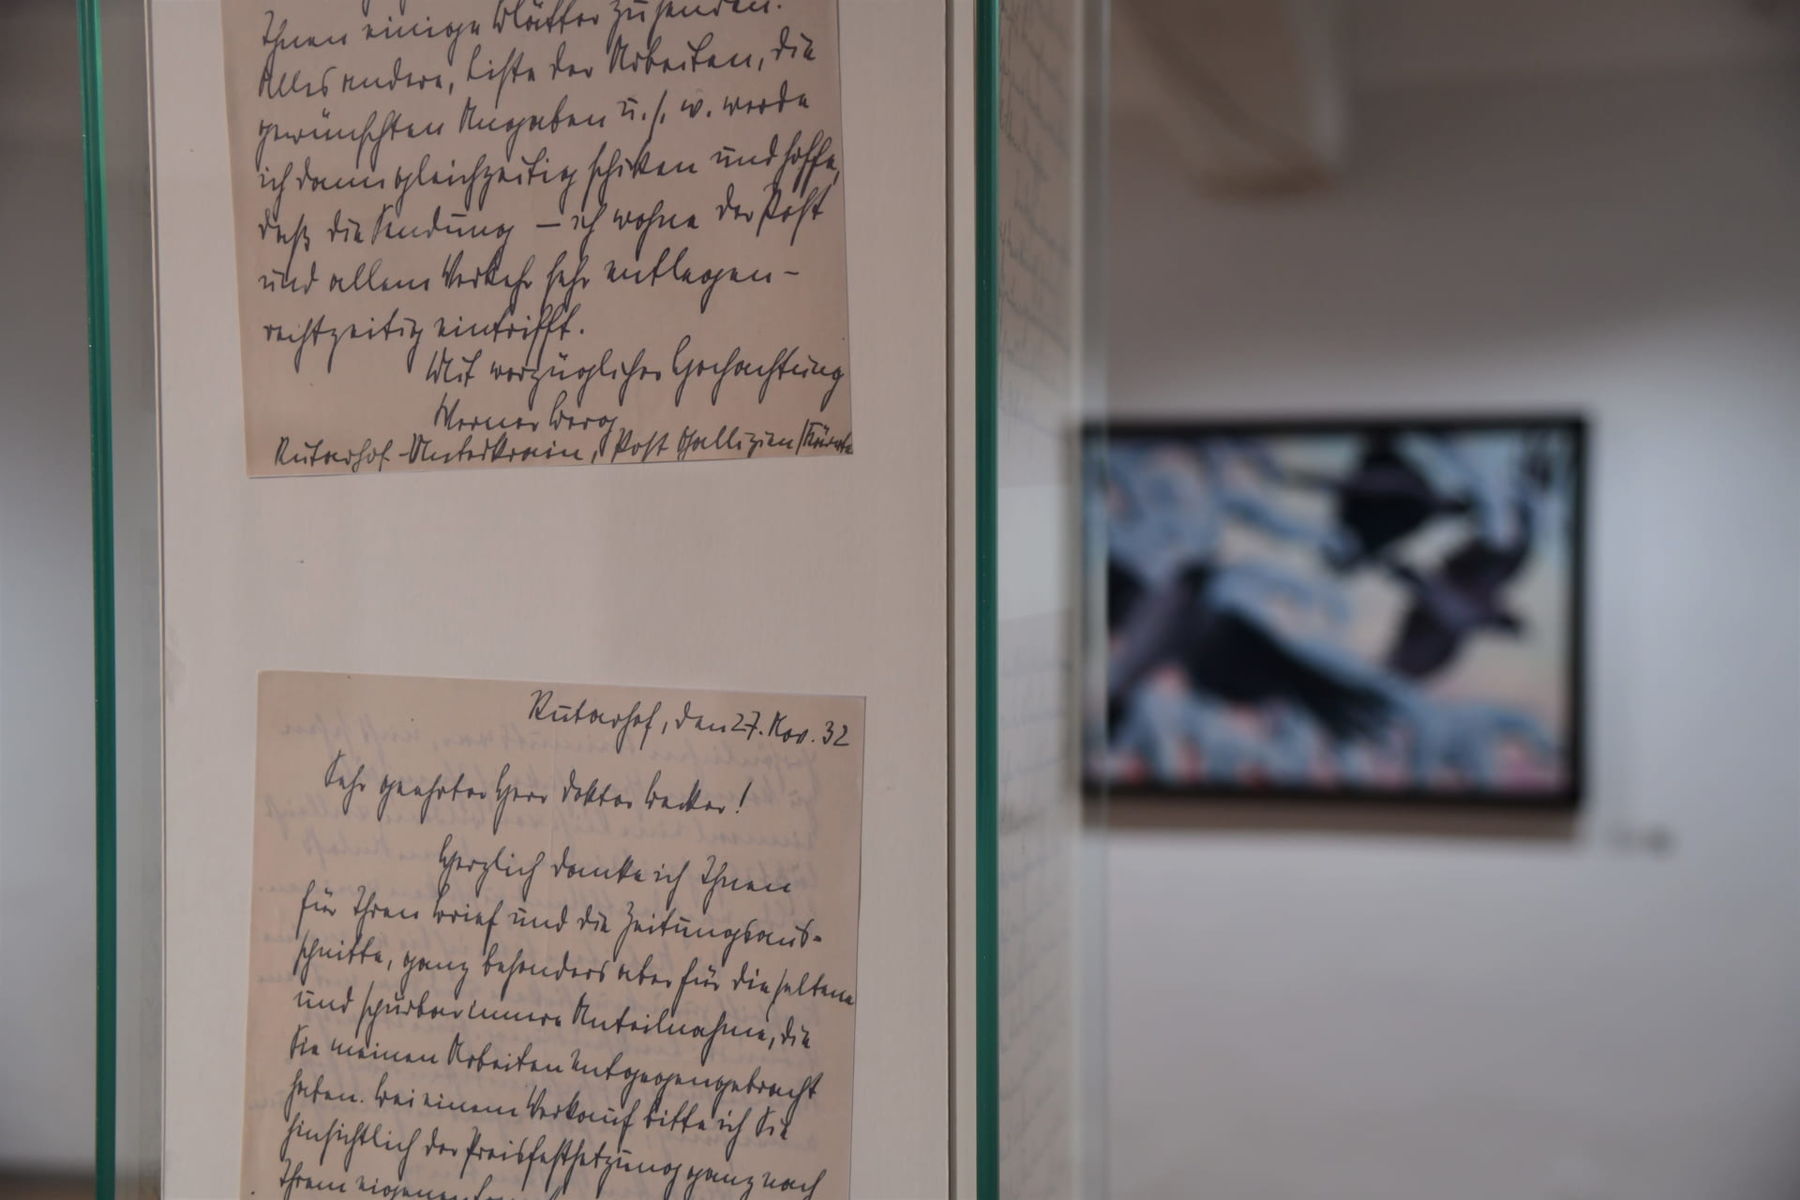 Ihnen einige Blätter zusenden.
Alles andere, Liste der Arbeiten, die
gewünschten Angaben u. s. w. werde
ich dann gleichzeitig schicken und hoffe,
daß die Sendung – ich wohne der Post
und allem Verkehr sehr entlegen –
rechtzeitig eintrifft.
Mit vorzüglicher Hochachtung
Werner Berg
Rutarhof-Unterkrain, Post Gallizien/Kärnten
Rutarhof, den 27. Nov. 32
Sehr geehrter Herr Doktor Becker!
Herzlich danke ich Ihnen
für Ihren Brief und die Zeitungsaus-
schnitte, ganz besonders aber für die seltene
und spürbar innere Anteilnahme, die
Sie meinen Arbeiten entgegengebracht
haben. Bei einem Verkauf bitte ich Sie
hinsichtlich der Preisfestsetzung ganz nach
Ihrem eigenen